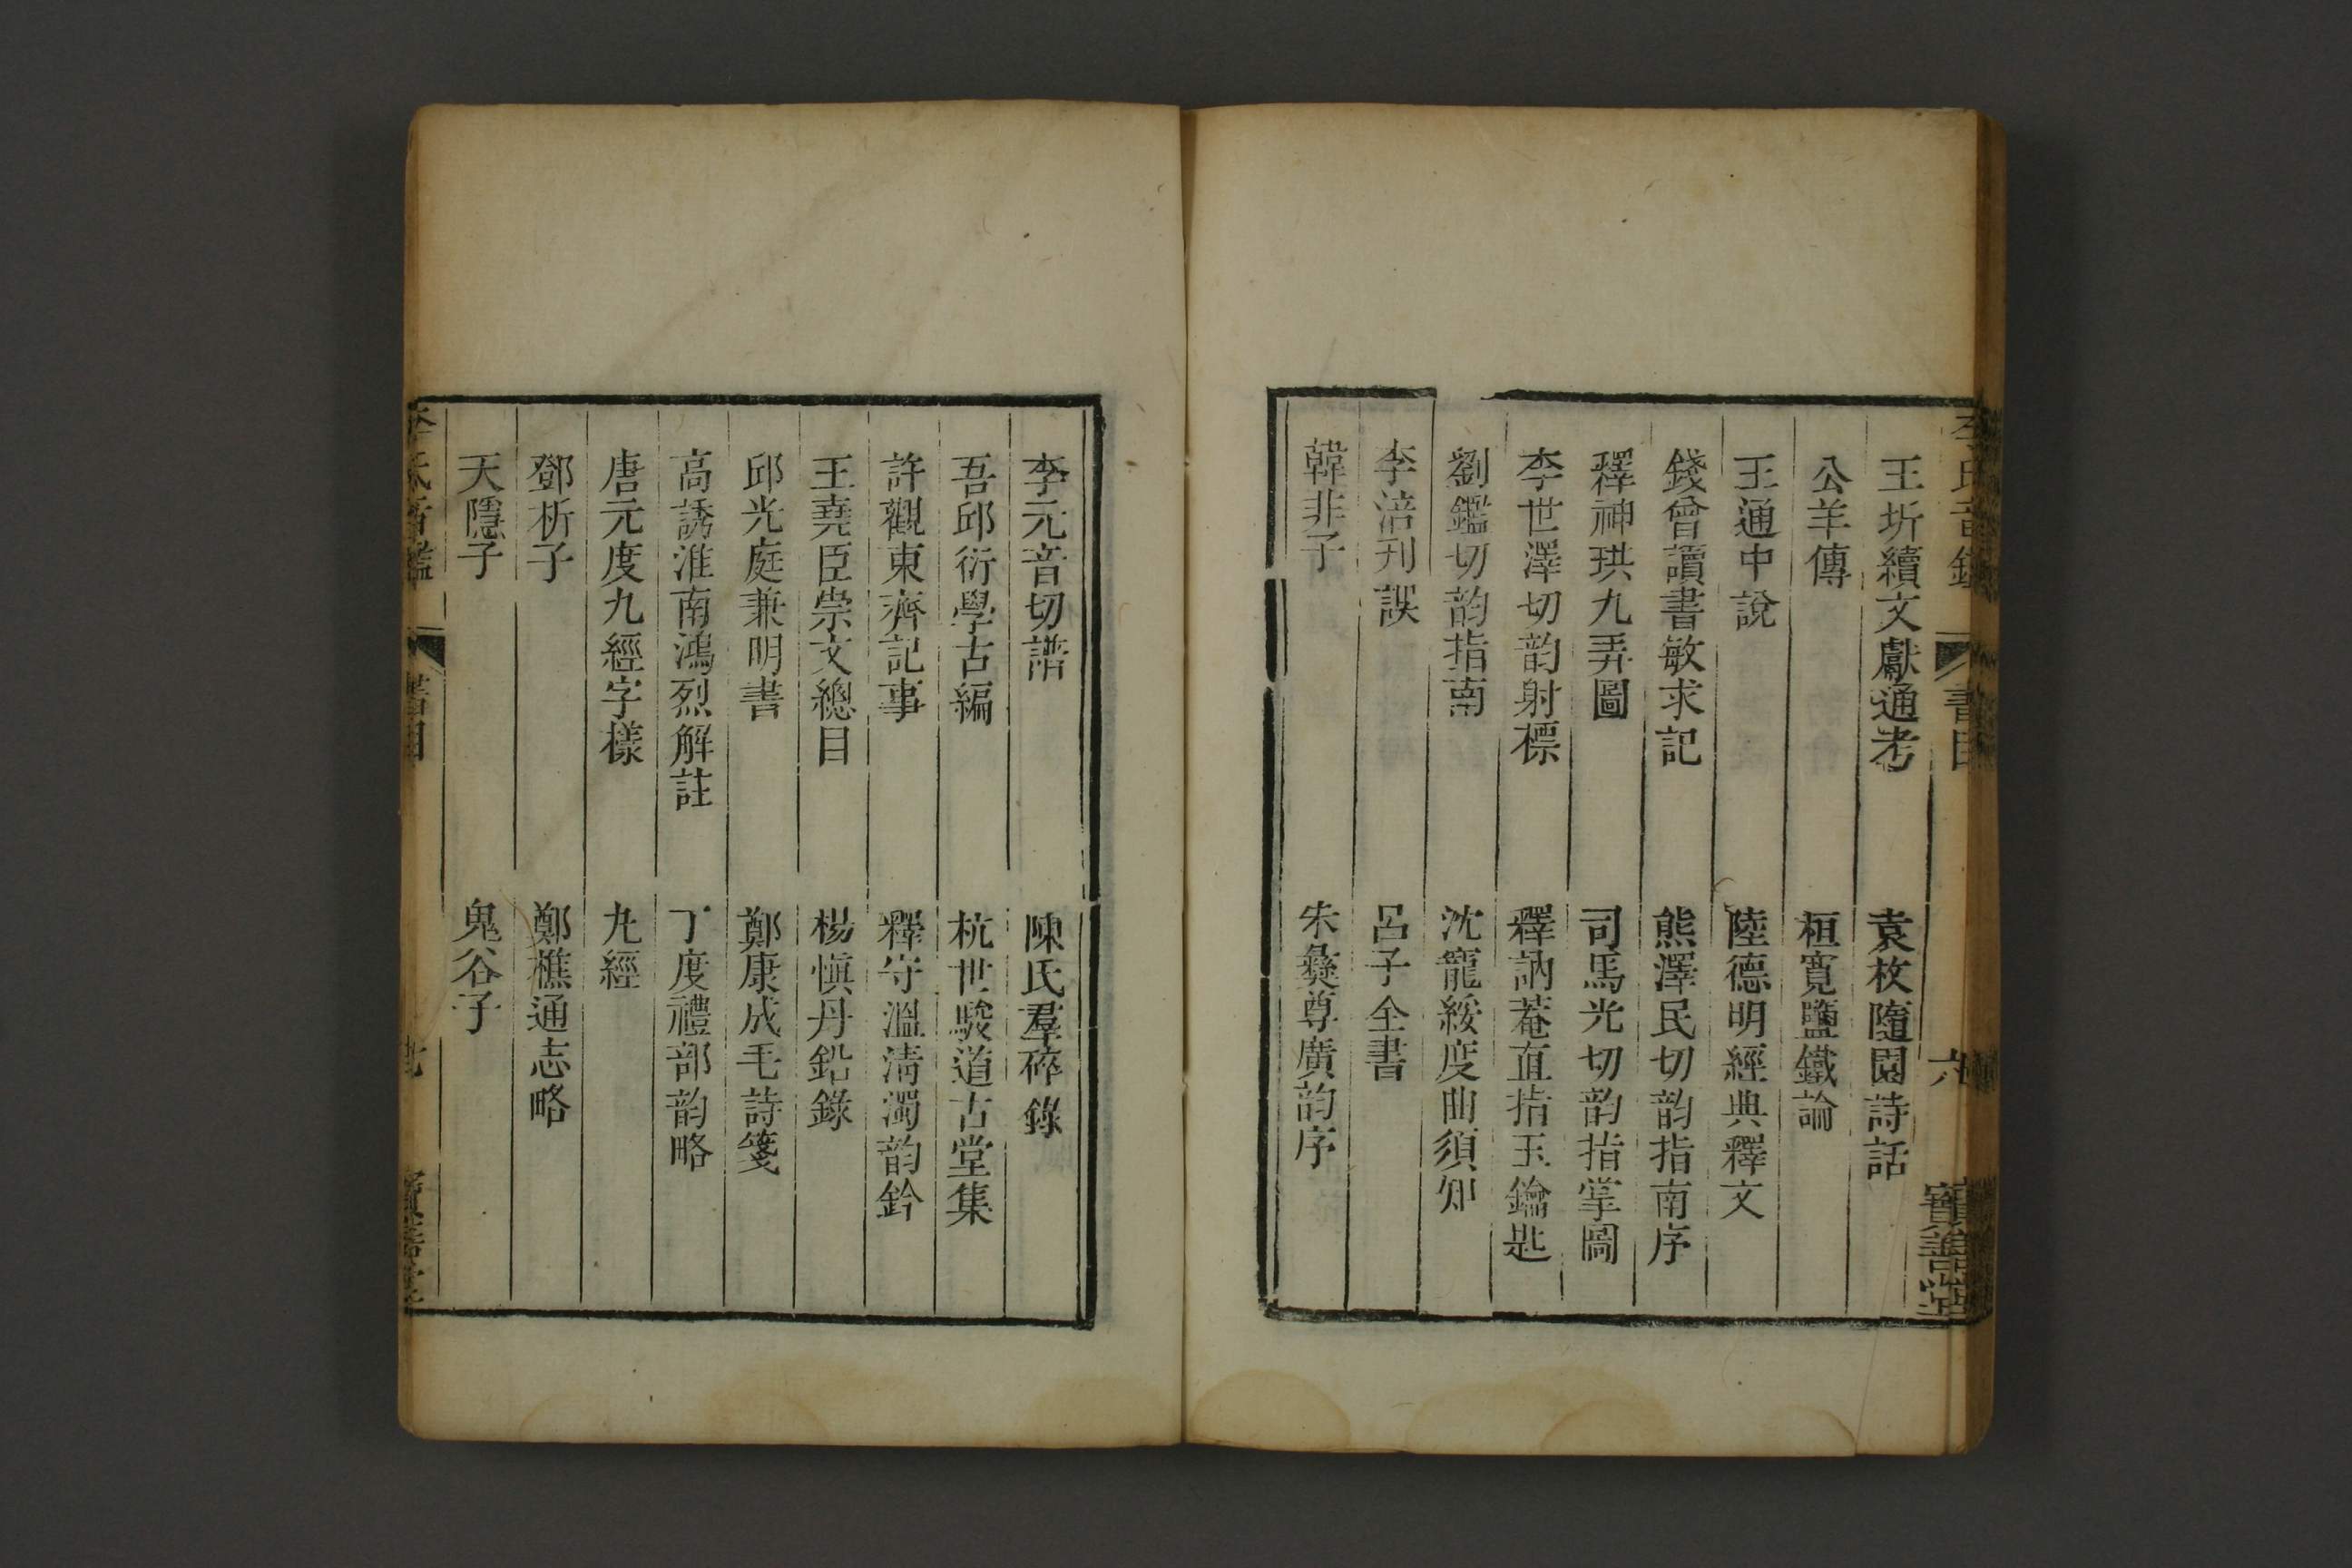 李氏音鑑 書目 六 寶善堂
王圻續文獻通考 袁枚隨園詩話
公羊傳 桓寬鹽鐵論
王通中說 陸德明經典釋文
錢曾讀書敏求記 熊澤民切韵指南序
釋神珙九弄圖 司馬光切韵指掌圖
李世澤切韵射標 釋訥菴直指玉鑰匙
劉鑑切韵指南 沈寵綏度曲須知
李涪刋誤 呂子全書
韓非子 朱彝尊廣韵序
李元音切譜 陳氏羣碎錄
吾邱衍學古編 杭世駿道古堂集
許觀東齋記事 釋守溫淸濁韵鈐
王堯臣崇文總目 楊愼丹鉛錄
邱光庭兼明書 鄭康成毛詩箋
高誘淮南鴻烈解註 丁度禮部韵略
唐元度九經字樣 九經
鄧析子 鄭樵通志略
天隱子 鬼谷子
李氏音鑑 書目 寶善堂